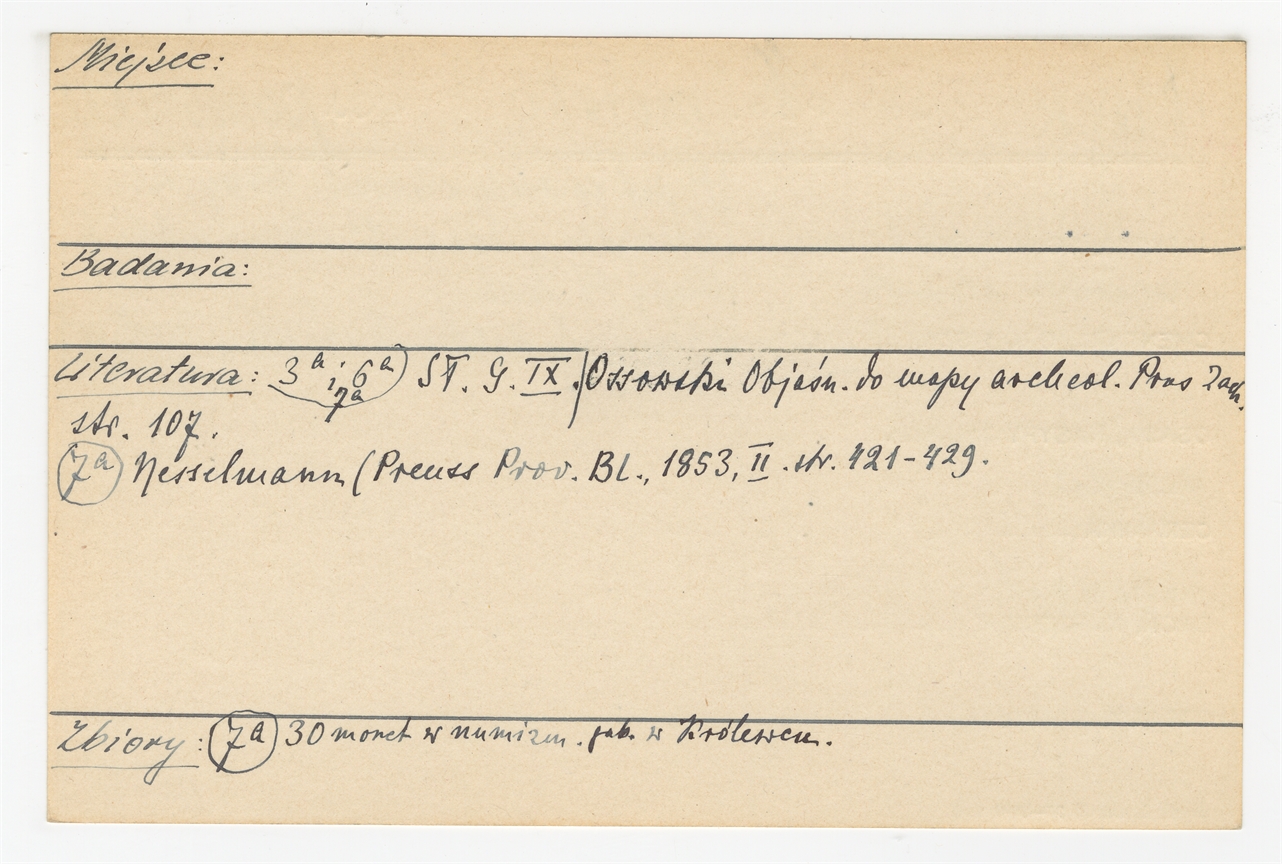 Miejsce:
Badania:
Literatura: 3a i 6a 7a Sł. G. IX. / Ossowski Objaśn. do mapy archeol. Prus Zach.
str. 107.
7a Nesselmann (Preuss Prov. Bl., 1853, II. str. 421-429.
Zbiory: 7a 30 monet w numizm. gab. w Królewcu.